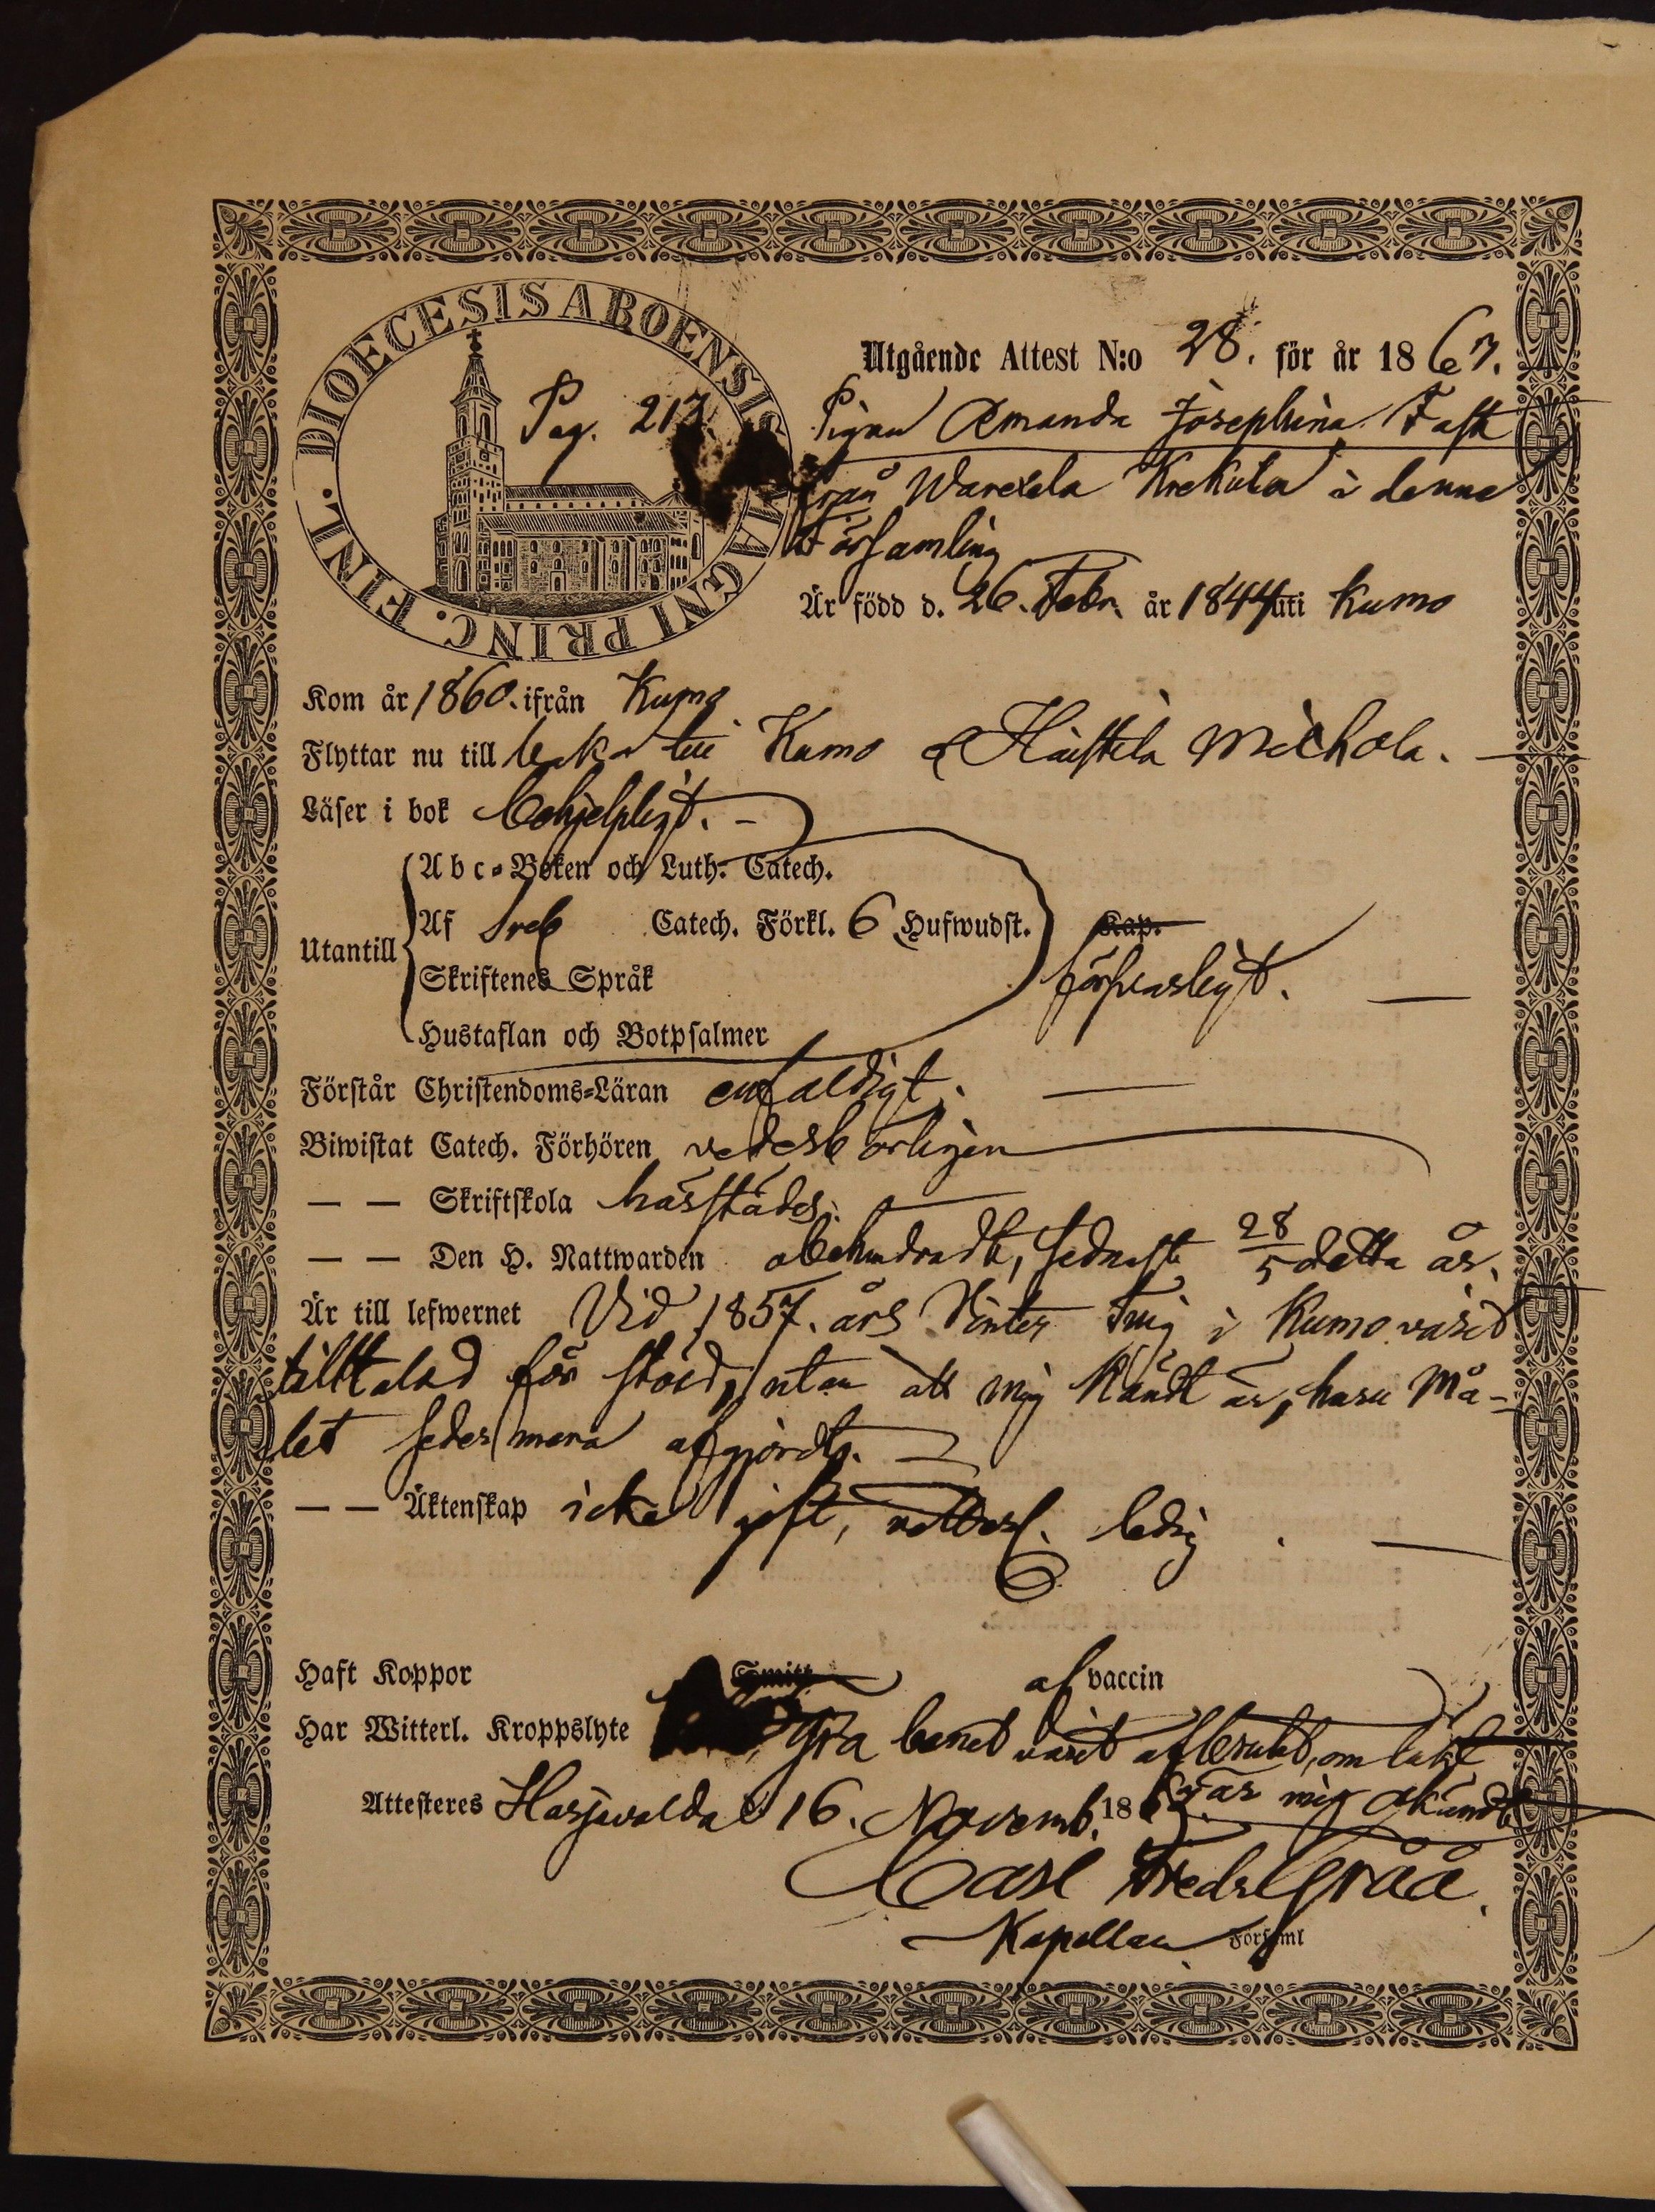 DIOECESIS ABOENSIS MAGNI PRINC. FINL.
Pag. 213
Utgående Attest N:o 28. för år 1867.
Pigan Amanda Josephina Fast
från Warekela Krekula i denna
Församling
Är född d. 26. Febr. år 1844 uti Kumo
Kom år 1860. ifrån Kumo
Flyttar nu till baka till Kumo & Häistila Michola.
Läser i bok behjelpligt.
Abc-Boken och Luth. Catech.
Af Sveb Catech. Förkl. 6 Hufwudst. Kap.
Utantill
Skriftenes Språk försvarligt.
Hustaflan och Botpsalmer
Förstår Christendoms-Läran enfaldigt.
Biwistat Catech. Förhören vederbörligen
— — Skriftskola härstädes.
— — Den H. Nattwarden obehindradt, sednaste 28/5 detta år.
Är till lefwernet Vid 1857. års Vinter Ting i Kumo varit
tilltalad för stöld, utan att mig kändt är, huru Må-
let sedermera afgjordts.
— — Äktenskap icke gift, ledig.
Haft Koppor Smitt af vaccin
Har Witterl. Kroppslyte benet varit afbrutet, om läkt
Attesteres Harjavalda d 16. Novemb. 1867. är mig okändt
Carl Fredr Gråå.
Kapellan Förs ml